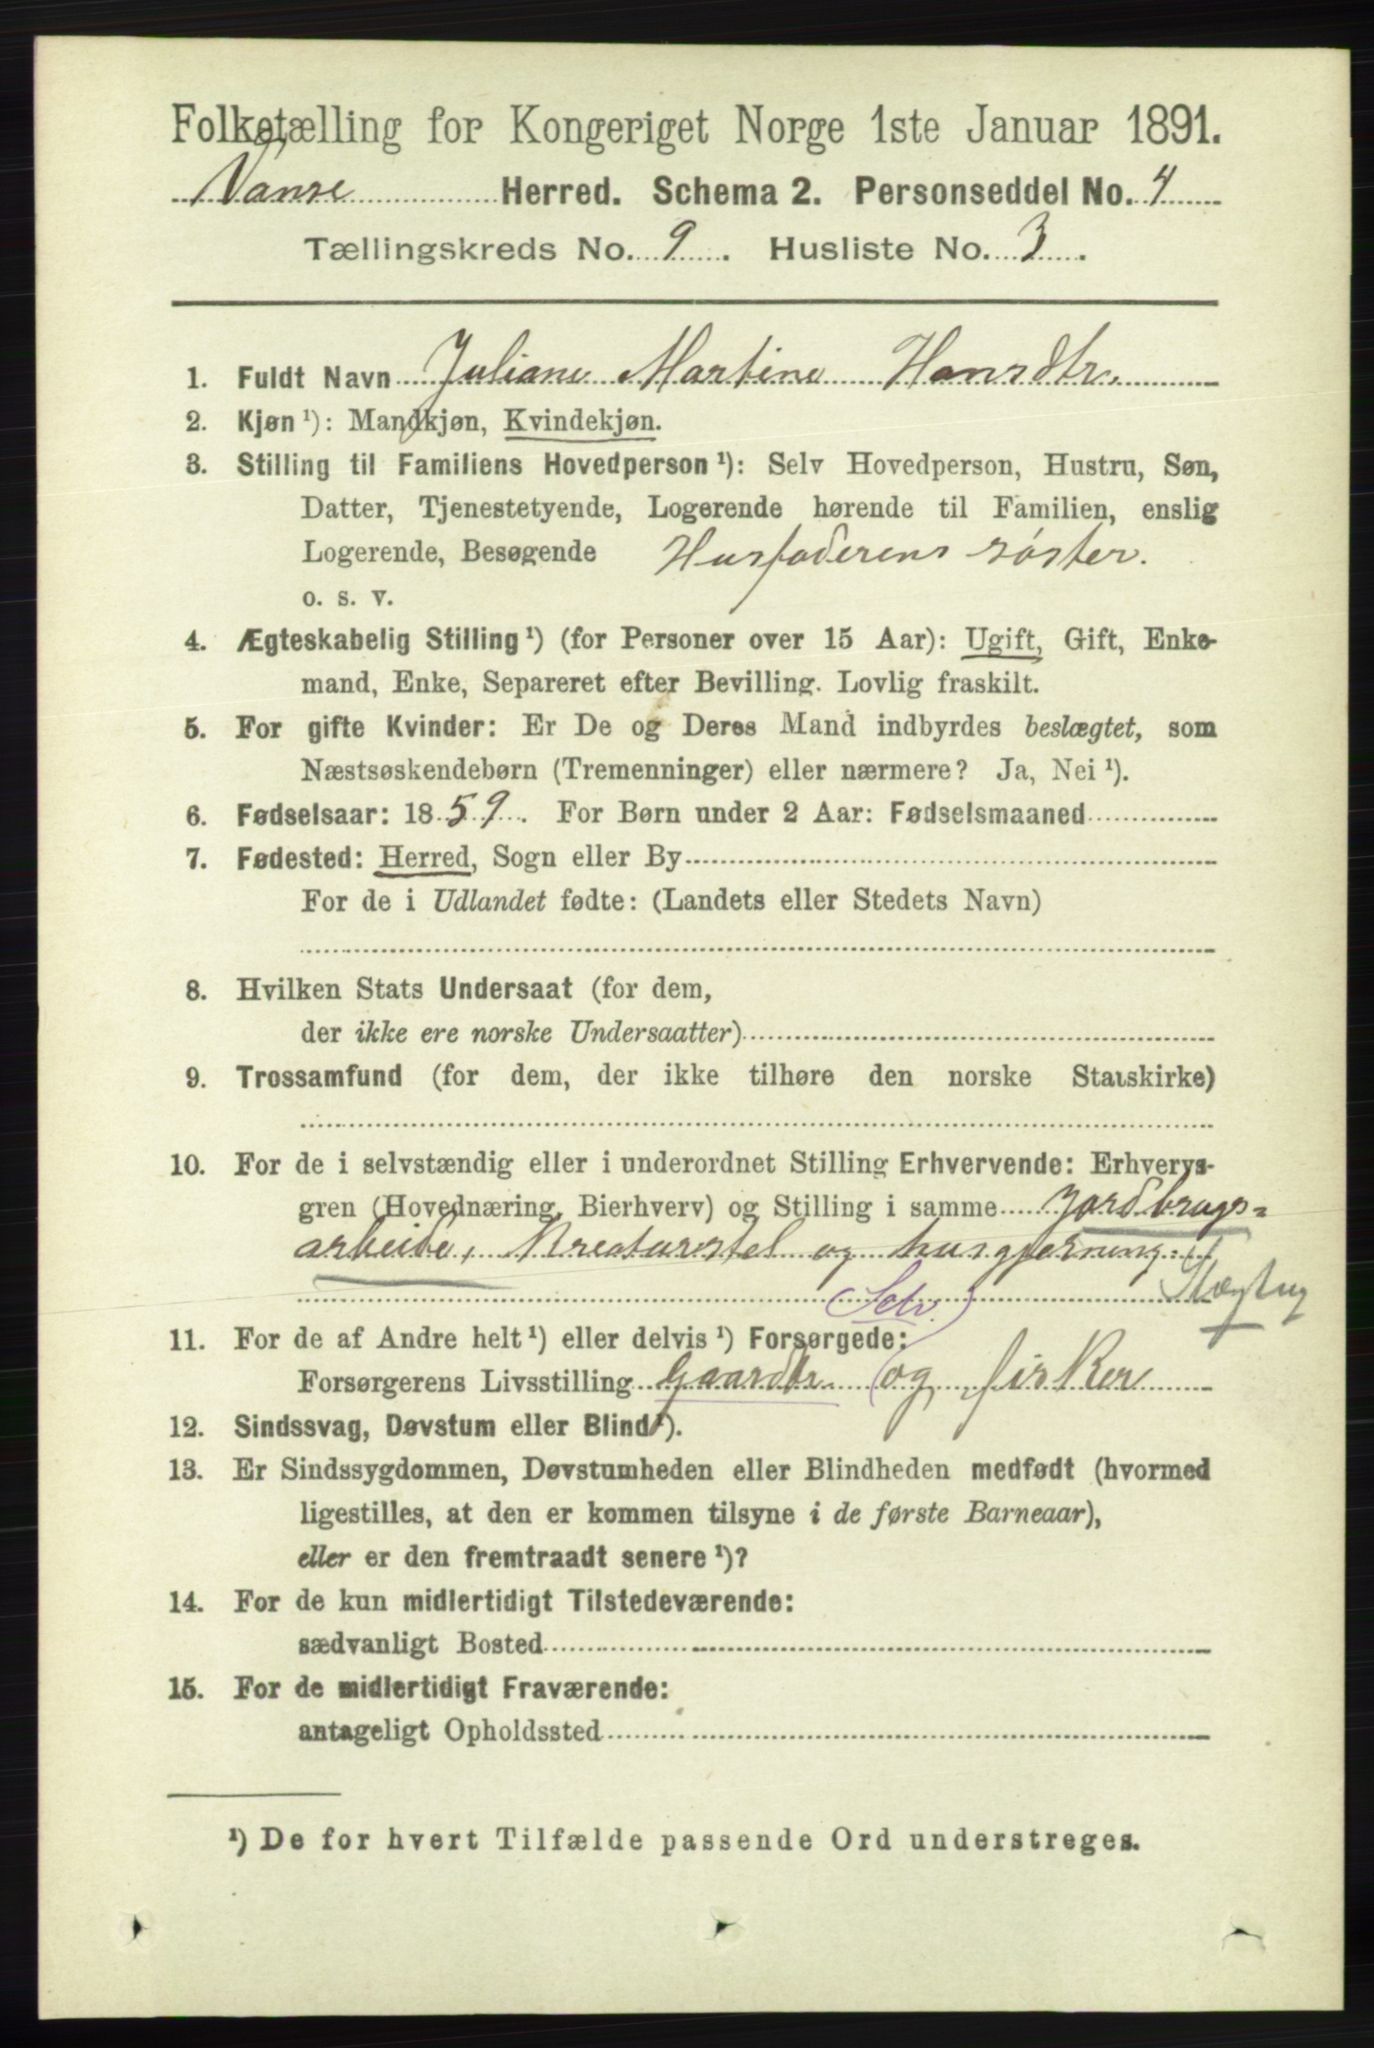 Folketælling for Kongeriget Norge 1ste Januar 1891.
Vanse Herred. Schema 2. Personseddel No. 4
Tællingskreds No. 9. Husliste No. 3.
1. Fuldt Navn Juliane Martine Hansdtr.
2. Kjøn ¹): Mandkjøn, Kvindekjøn.
3. Stilling til Familiens Hovedperson ¹): Selv Hovedperson, Hustru, Søn,
Datter, Tjenestetyende, Logerende hørende til Familien, enslig
Logerende, Besøgende Husfaderens søster.
o. s. v.
4. Ægteskabelig Stilling ¹) (for Personer over 15 Aar): Ugift, Gift, Enke-
mand, Enke, Separeret efter Bevilling. Lovlig fraskilt.
5. For gifte Kvinder: Er De og Deres Mand indbyrdes beslægtet, som
Næstsøskendebørn (Tremenninger) eller nærmere? Ja, Nei ¹).
6. Fødselsaar: 1859. For Børn under 2 Aar: Fødselsmaaned
7. Fødested: Herred, Sogn eller By
For de i Udlandet fødte: (Landets eller Stedets Navn)
8. Hvilken Stats Undersaat (for dem,
der ikke ere norske Undersaatter)
9. Trossamfund (for dem, der ikke tilhøre den norske Statskirke)
10. For de i selvstændig eller i underordnet Stilling Erhvervende: Erhvervs-
gren (Hovednæring, Bierhverv) og Stilling i samme Jordbrugs-
arbeide, Kreaturstel og husgjerning.
Selv. Slægtng
11. For de af Andre helt ¹) eller delvis ¹) Forsørgede:
Forsørgerens Livsstilling Gaardbr. (og fisker
12. Sindssvag, Døvstum eller Blind ¹).
13. Er Sindssygdommen, Døvstumheden eller Blindheden medfødt (hvormed
ligestilles, at den er kommen tilsyne i de første Barneaar),
eller er den fremtraadt senere ¹)?
14. For de kun midlertidigt Tilstedeværende:
sædvanligt Bosted
15. For de midlertidigt Fraværende:
antageligt Opholdssted
¹) De for hvert Tilfælde passende Ord understreges.